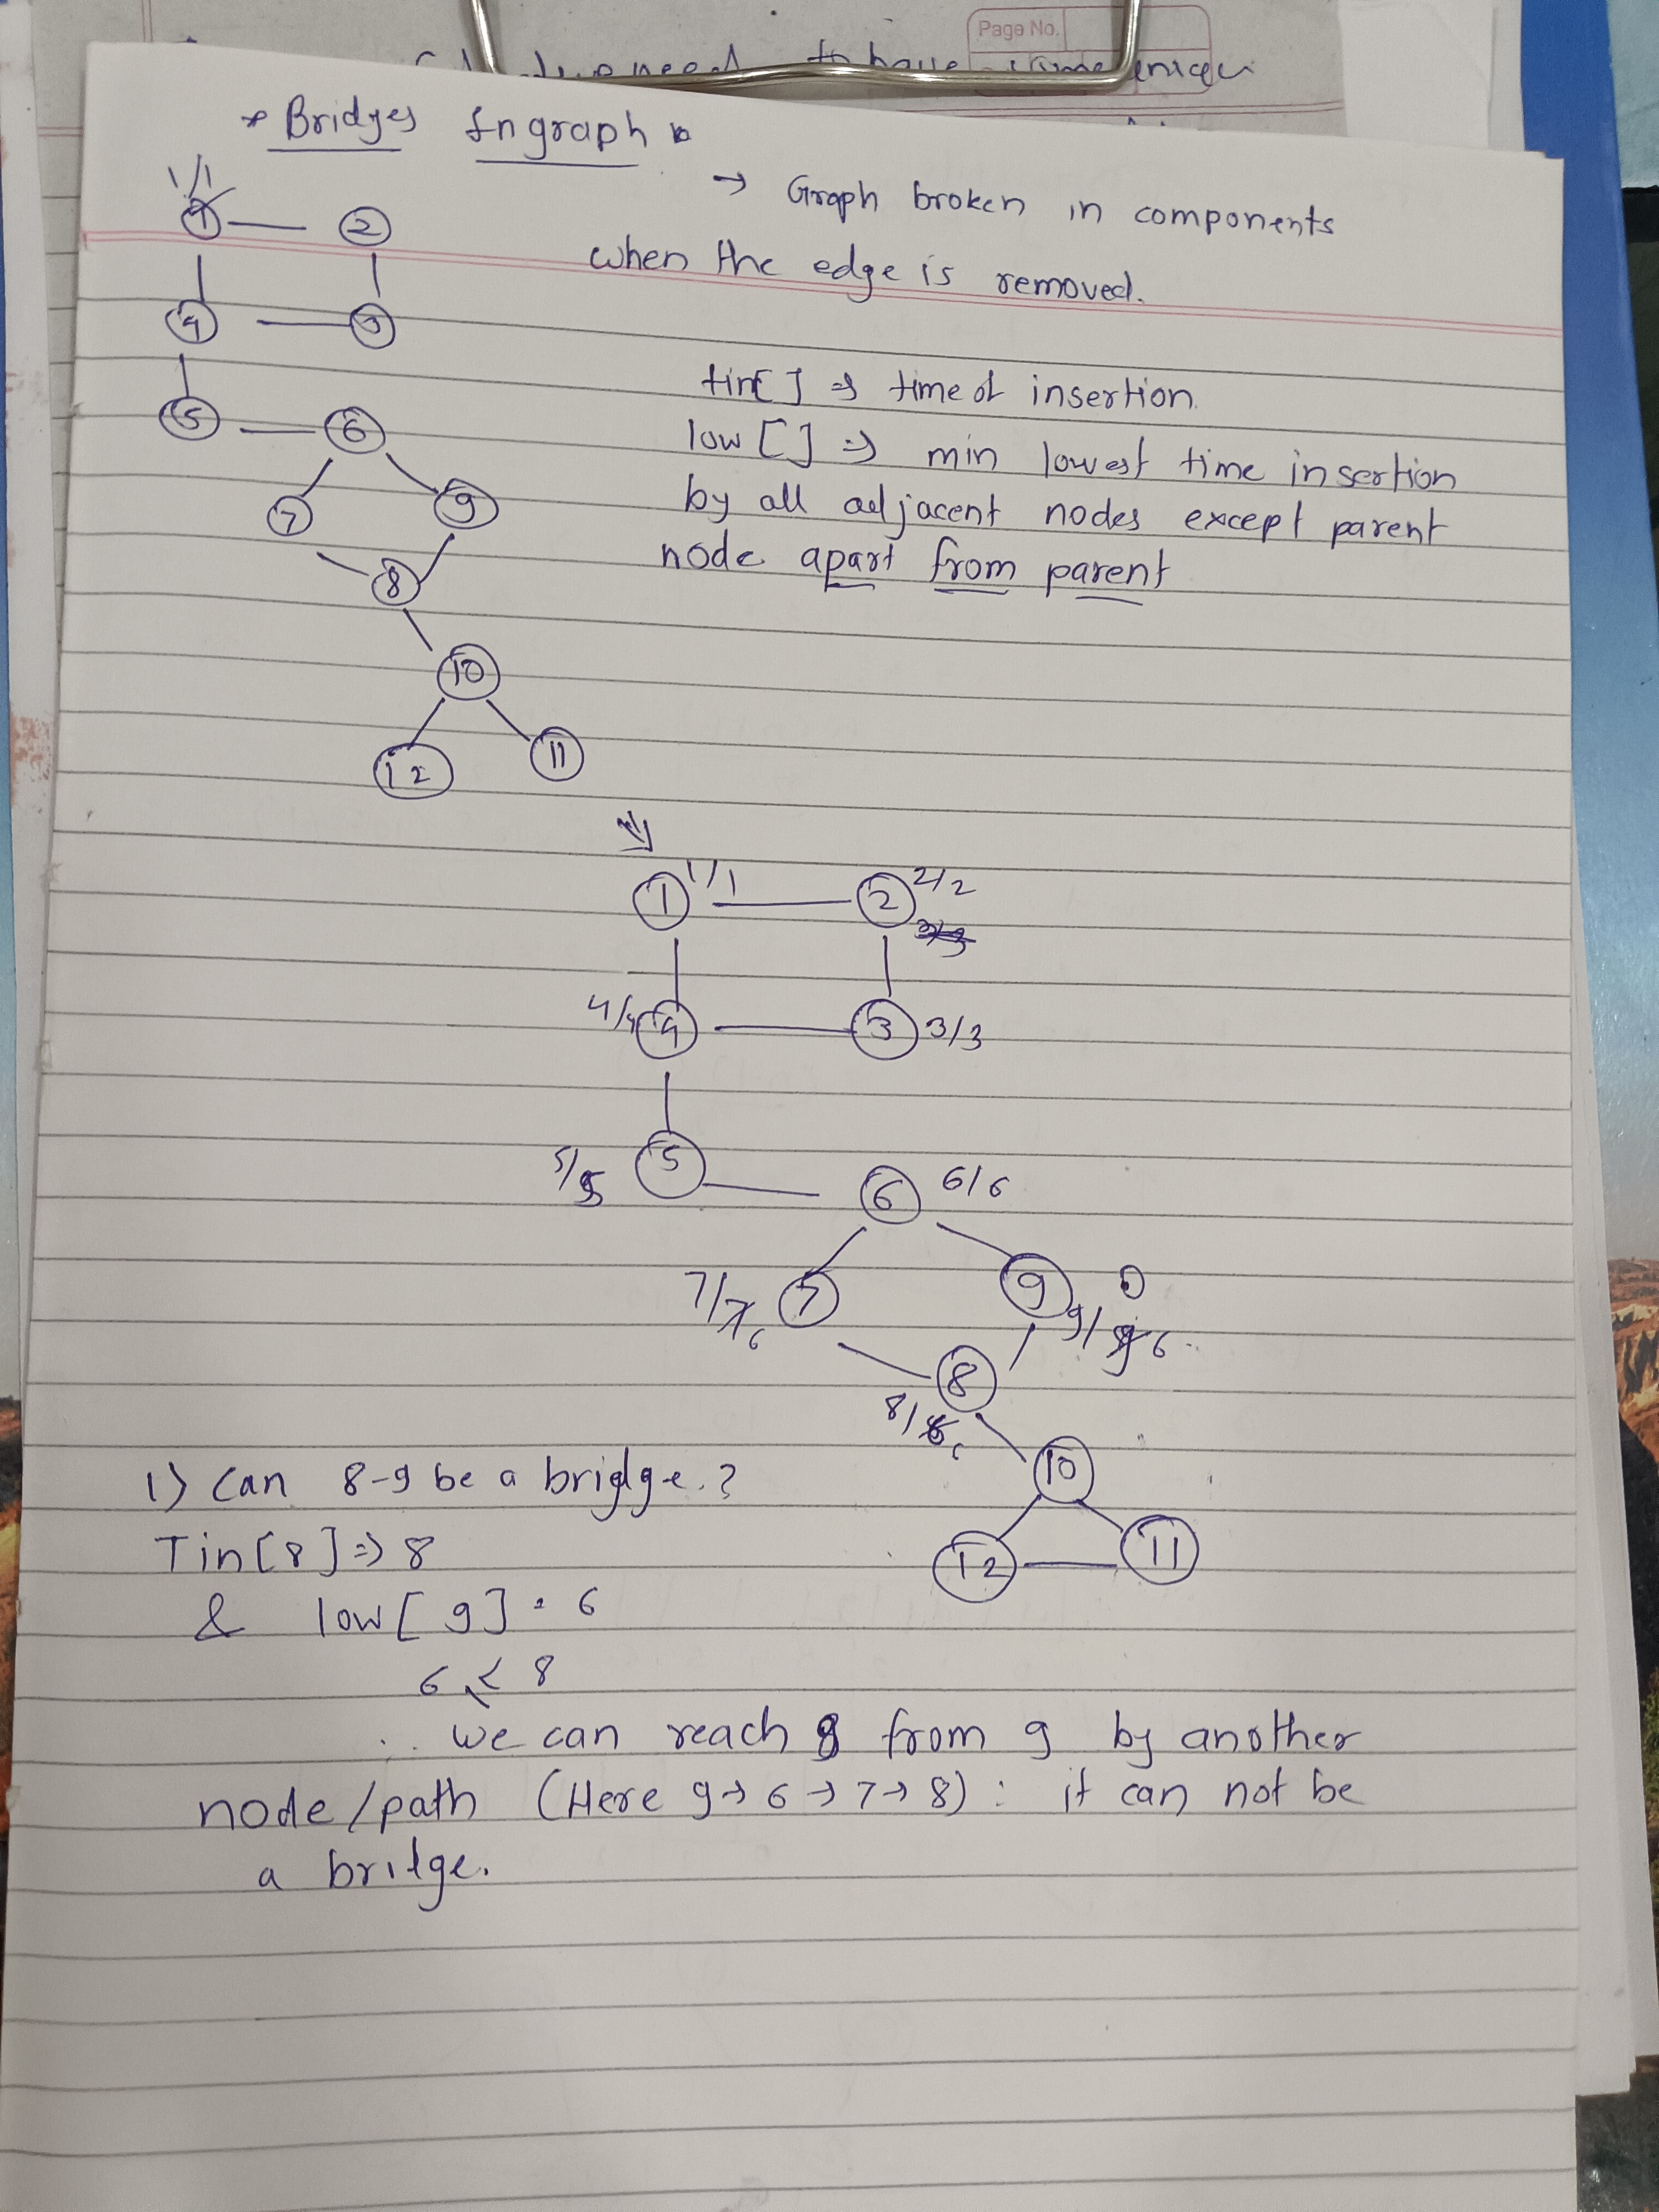 Page No.
to have some
* Bridges In graph
→ Graph broken in components
when the edge is removed.
1/1
1 2
4 3
5 6
7 9
8
10
12 11
tin[ ] ⇒ time of insertion.
low [ ] ⇒ min lowest time insertion
by all adjacent nodes except parent
node apart from parent
1 1/1 2 2/2
3/3
4/4 4 3 3/3
5/5 5 6 6/6
7/7 6 7 9 9/9 6
8
8/8 6
10
12 11
1) Can 8-9 be a bridge.?
Tin[8] ⇒ 8
& low[9] = 6
6 < 8
∴ we can reach 8 from 9 by another
node/path (Here 9→6→7→8) : it can not be
a bridge.